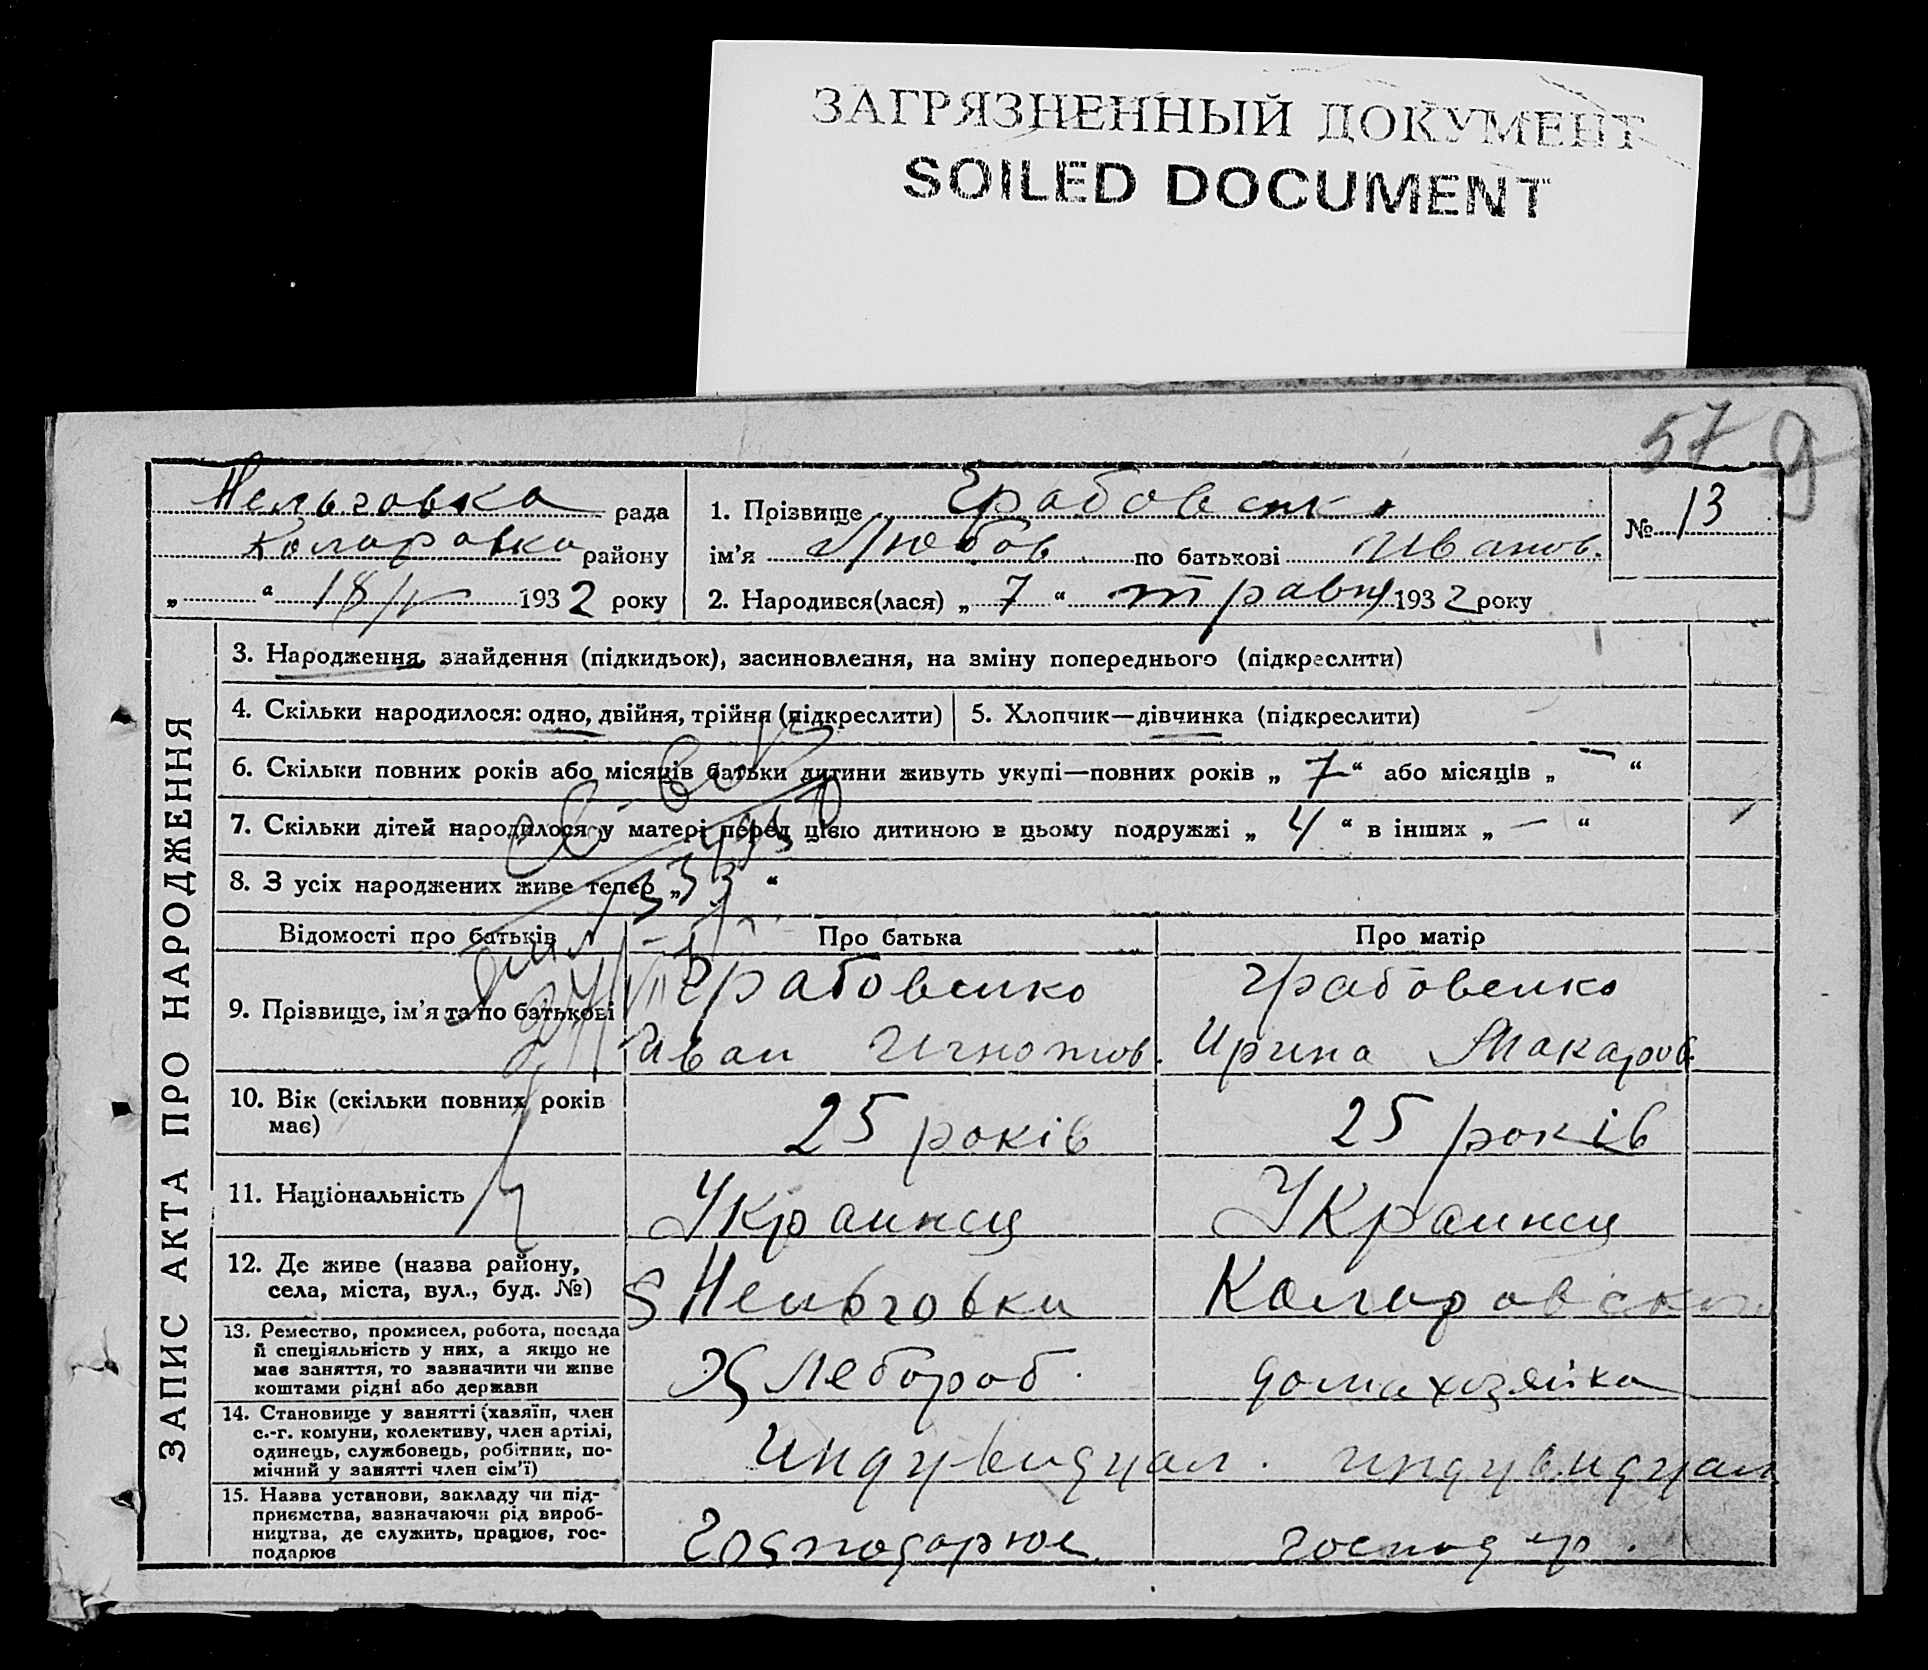 ЗАГРЯЗНЕННЫЙ ДОКУМЕНТ
SOILED DOCUMENT
57
Нельговка рада
Коларовка району
„ “ 18/V 1932 року
1. Прізвище Грабовенко
ім'я Любов по батькові Иванов.
2. Народився(лася) „ 7 “ травня 1932 року
№ 13
ЗАПИС АКТА ПРО НАРОДЖЕННЯ
3. Народження, знайдення (підкидьок), засиновлення, на зміну попереднього (підкреслити)
4. Скільки народилося: одно, двійня, трійня (підкреслити)
5. Хлопчик—дівчинка (підкреслити)
6. Скільки повних років або місяців батьки дитини живуть укупі—повних років „ 7 “ або місяців „ — “
7. Скільки дітей народилося у матері перед цією дитиною в цьому подружжі „ 4 “ в інших „ — “
8. З усіх народжених живе тепер „ 3 “
Відомості про батьків
Про батька
Про матір
9. Прізвище, ім'я та по батькові
Грабовенко
Иван Игнатов.
Грабовенко
Ирина Макаров.
10. Вік (скільки повних років
має)
25 років
25 років
11. Національність
Украинец
Украинец
12. Де живе (назва району,
села, міста, вул., буд. №)
Нельговка
Коларовского
13. Ремество, промисел, робота, посада
й спеціяльність у них, а якщо не
має заняття, то зазначити чи живе
коштами рідні або держави
Хлебороб.
домахозяйка
14. Становище у занятті (хазяїн, член
с.-г. комуни, колективу, член артілі,
одинець, службовець, робітник, по-
мічний у занятті член сім'ї)
индувидуал.
индувидуал
15. Назва установи, закладу чи під-
приємства, зазначаючи рід вироб-
ництва, де служить, працює, гос-
подарює
Господарює
господар.